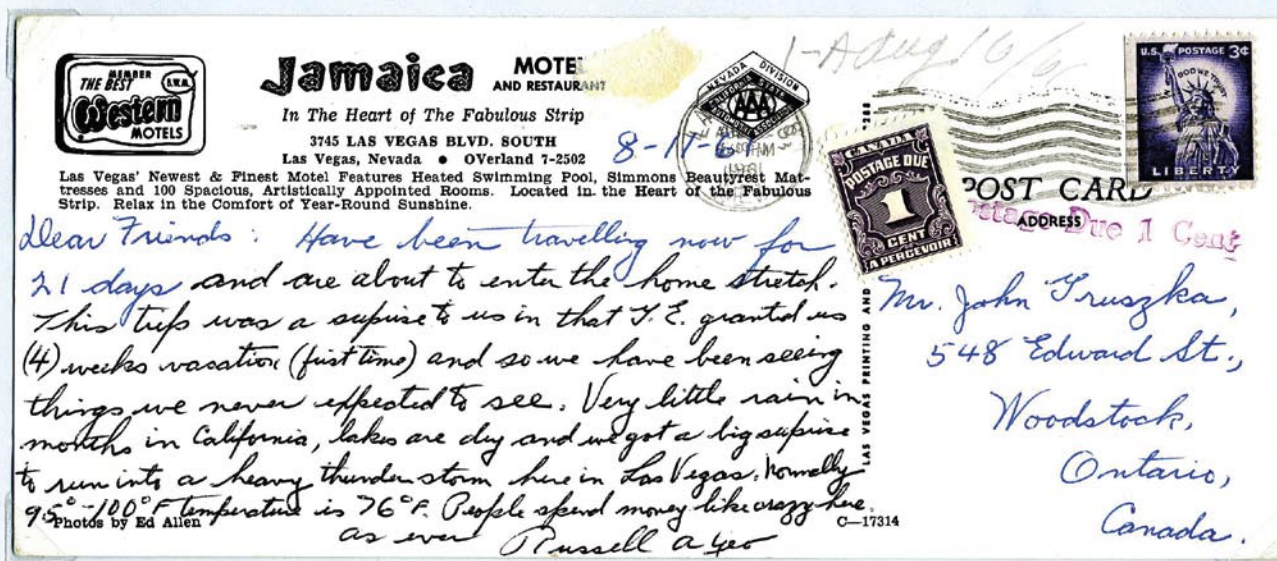 MEMBER
THE BEST
Western
MOTELS
Jamaica MOTE
AND RESTAURANT
In The Heart of The Fabulous Strip
3745 LAS VEGAS BLVD. SOUTH
Las Vegas, Nevada • OVerland 7-2502
8-17-61
Las Vegas' Newest & Finest Motel Features Heated Swimming Pool, Simmons Beautyrest Mat-
tresses and 100 Spacious, Artistically Appointed Rooms. Located in the Heart of the Fabulous
Strip. Relax in the Comfort of Year-Round Sunshine.
NEVADA DIVISION
CALIFORNIA STATE
AAA
AUTOMOBILE ASSOCIATION
U.S. POSTAGE 3¢
IN GOD WE TRUST
LIBERTY
CANADA
POSTAGE DUE
1
CENT
A PERCEVOIR
POST CARD
ADDRESS
Postage Due 1 Cent
Dear Friends: Have been travelling now for
21 days and are about to enter the home stretch.
This trip was a supise to us in that G.E. granted us
(4) weeks vacation (first time) and so we have been seeing
things we never expected to see. Very little rain in
months in California, lakes are dry and we got a big supise
to run into a heavy thunder storm here in Las Vegas. Normally
95°-100°F temperature is 76°F. People spend money like crazy here.
as ever Russell
Photos by Ed Allen
C—17314
LAS VEGAS PRINTING AND
Mr. John Gruszka,
548 Edward St.,
Woodstock,
Ontario,
Canada.